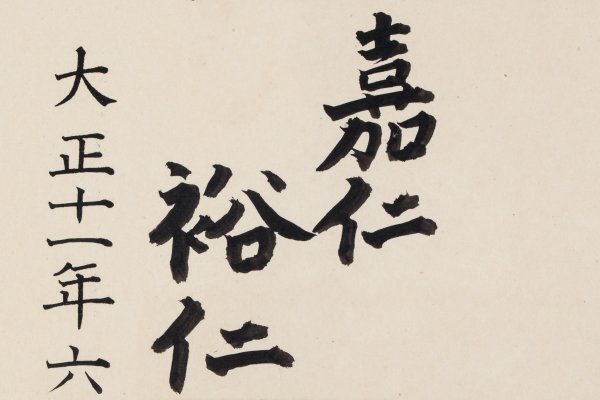 嘉仁
裕仁
大正十一年六